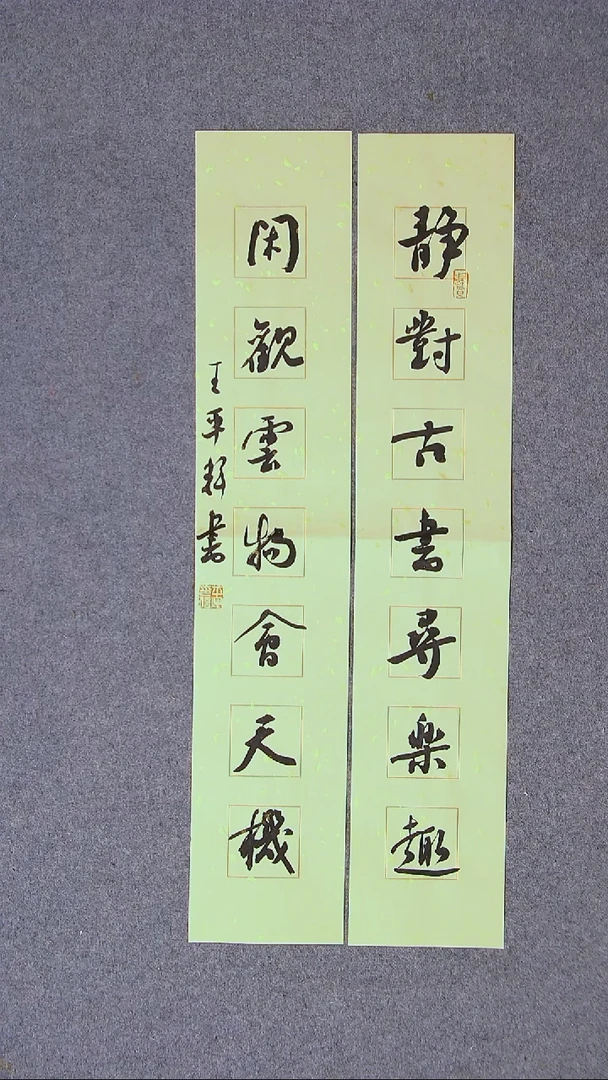 静對古書尋樂趣
閑觀雲物會天機
王平輝書